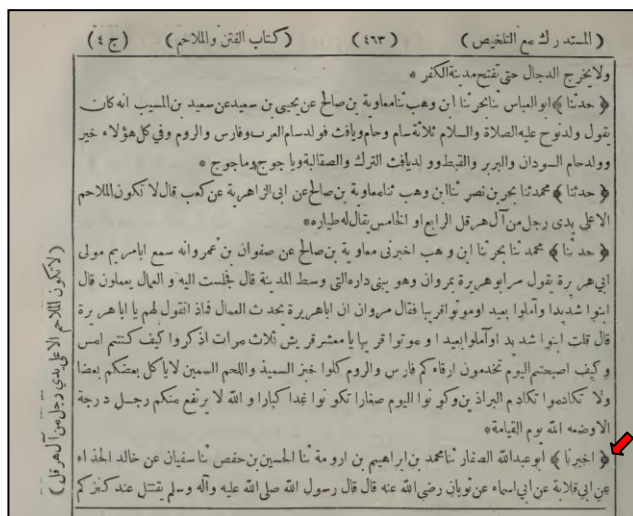 ( المستدرك مع التلخيص ) ( ٤٦٣ ) ( كتاب الفتن والملاحم ) ( ج ٤ )
ولا يخرج الدجال حتى تفتح مدينة الكفر *
﴿ حدثنا ﴾ ابو العباس ثنا بحر ثنا ابن وهب ثنا معاوية بن صالح عن يحيى بن سعيد عن سعيد بن المسيب انه كان
يقول ولد نوح عليه الصلاة والسلام ثلاثة سام وحام ويافث فولد سام العرب وفارس والروم وفي كل هؤلاء خير
وولد حام السودان والبربر والقبط وولد يافث الترك والصقالبة ويا جوج وماجوج *
﴿ حدثنا ﴾ محمد ثنا بحر بن نصر ثنا ابن وهب ثنا معاوية بن صالح عن ابي الزاهرية عن كعب قال لا تكون الملاحم
الا على يدي رجل من آل هرقل الرابع او الخامس يقال له طياره*
﴿ حدثنا ﴾ محمد ثنا بحر ثنا ابن وهب اخبرني معاوية بن صالح عن صفوان بن عمرو انه سمع ابا مريم مولى
ابي هريرة يقول مر ابو هريرة بمروان وهو يبني داره التي وسط المدينة قال فجلست اليه والعمال يعملون قال
ابنوا شديدا وآملوا بعيد او موتوا قريبا فقال مروان ان ابا هريرة يحدث العمال فماذا تقول لهم يا ابا هريرة
قال قلت ابنوا شديدا وآملوا بعيدا و موتوا قريبا يا معشر قريش ثلاث مرات اذكروا كيف كنتم امس
و كيف اصبحتم اليوم تخدمون ارقاء كم فارس والروم كلوا خبز السميذ واللحم السمين لا ياكل بعضكم بعضا
ولا تكادموا تكادم البراذين وكونوا اليوم صغارا تكونوا غدا كبارا و الله لا يرتفع منكم رجل درجة
الا وضعه الله يوم القيامة*
﴿ اخبرنا ﴾ ابو عبدالله الصفار ثنا محمد بن ابراهيم بن ارومة ثنا الحسين بن حفص ثنا سفيان عن خالد الحذاء
عن ابي قلابة عن ابي اسماء عن ثوبان رضي الله عنه قال قال رسول الله صلى الله عليه وآله وسلم يقتتل عند كنزكم
( لا تكون الملاحم الا على يدي رجل من آل هرقل )